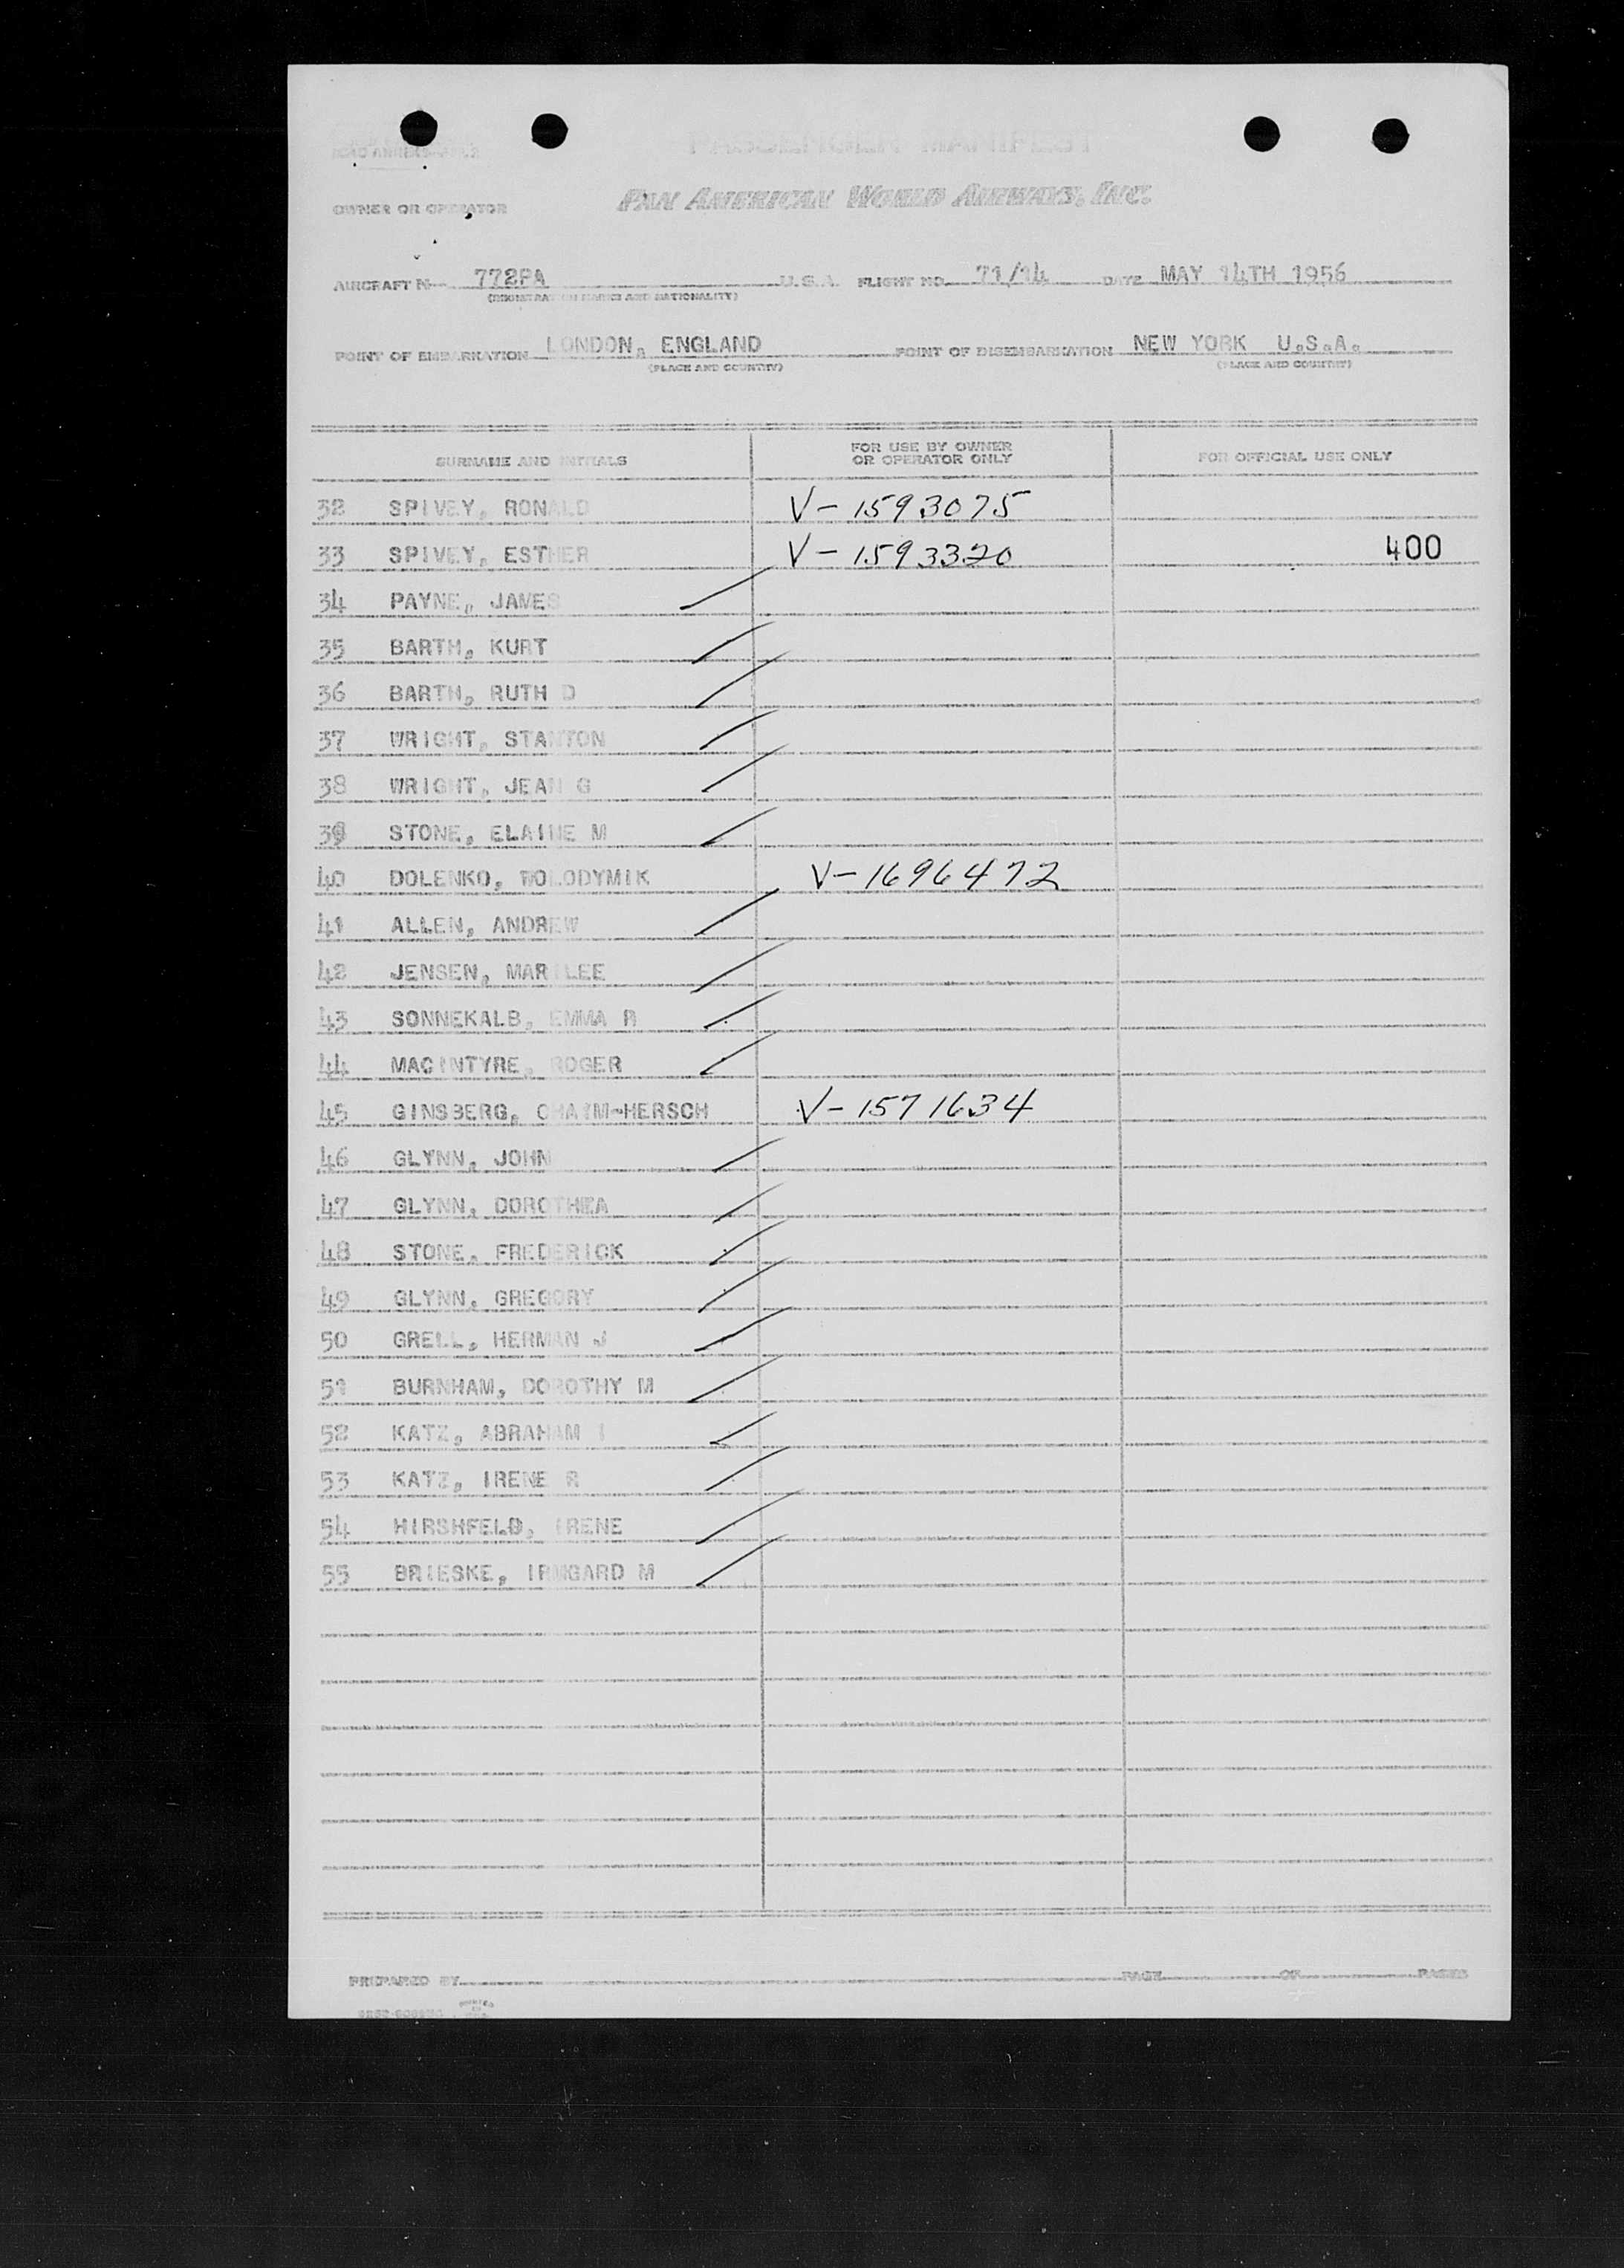 OWNER OR OPERATOR
PAN AMERICAN WORLD AIRWAYS, INC.
AIRCRAFT N 772PA U.S.A. FLIGHT NO. 71/14 DATE MAY 14TH 1956
(REGISTRATION MARKS AND NATIONALITY)
POINT OF EMBARKATION LONDON, ENGLAND POINT OF DISEMBARKATION NEW YORK U.S.A.
(PLACE AND COUNTRY) (PLACE AND COUNTRY)
SURNAME AND INITIALS FOR USE BY OWNER OR OPERATOR ONLY FOR OFFICIAL USE ONLY
32 SPIVEY, RONALD V-1593075
33 SPIVEY, ESTHER V-1593320 400
34 PAYNE, JAMES
35 BARTH, KURT
36 BARTH, RUTH D
37 WRIGHT, STANTON
38 WRIGHT, JEAN G
39 STONE, ELAINE M
40 DOLENKO, WOLODYMIK V-1696472
41 ALLEN, ANDREW
42 JENSEN, MARILEE
43 SONNEKALB, EMMA R
44 MACINTYRE, ROGER
45 GINSBERG, CHAYM-HERSCH V-1571634
46 GLYNN, JOHN
47 GLYNN, DOROTHEA
48 STONE, FREDERICK
49 GLYNN, GREGORY
50 GRELL, HERMAN J
51 BURNHAM, DOROTHY M
52 KATZ, ABRAHAM I
53 KATZ, IRENE R
54 HIRSHFELD, IRENE
55 BRIESKE, IRMGARD M
PREPARED BY PAGE OF PAGES
PRINTED IN